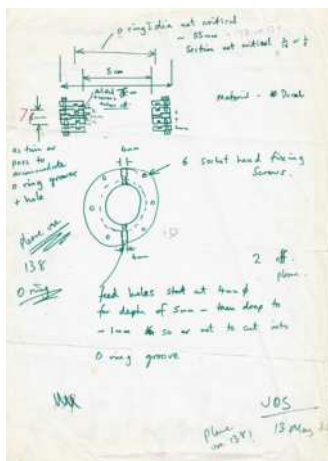 O ring I dia not critical
~ 55mm
Section not critical
5 cm
material - Dural
as thin as
poss to
accommodate
O ring groove
+ hole
6mm
6 socket head fixing
Screws.
phone
138
O ring
4mm
2 off
feed holes start at 4mm φ
for depth of 5mm - then drop to
~ 1mm so as not to cut into
O ring groove
MAX
JOS
13 May
phone
on 138!